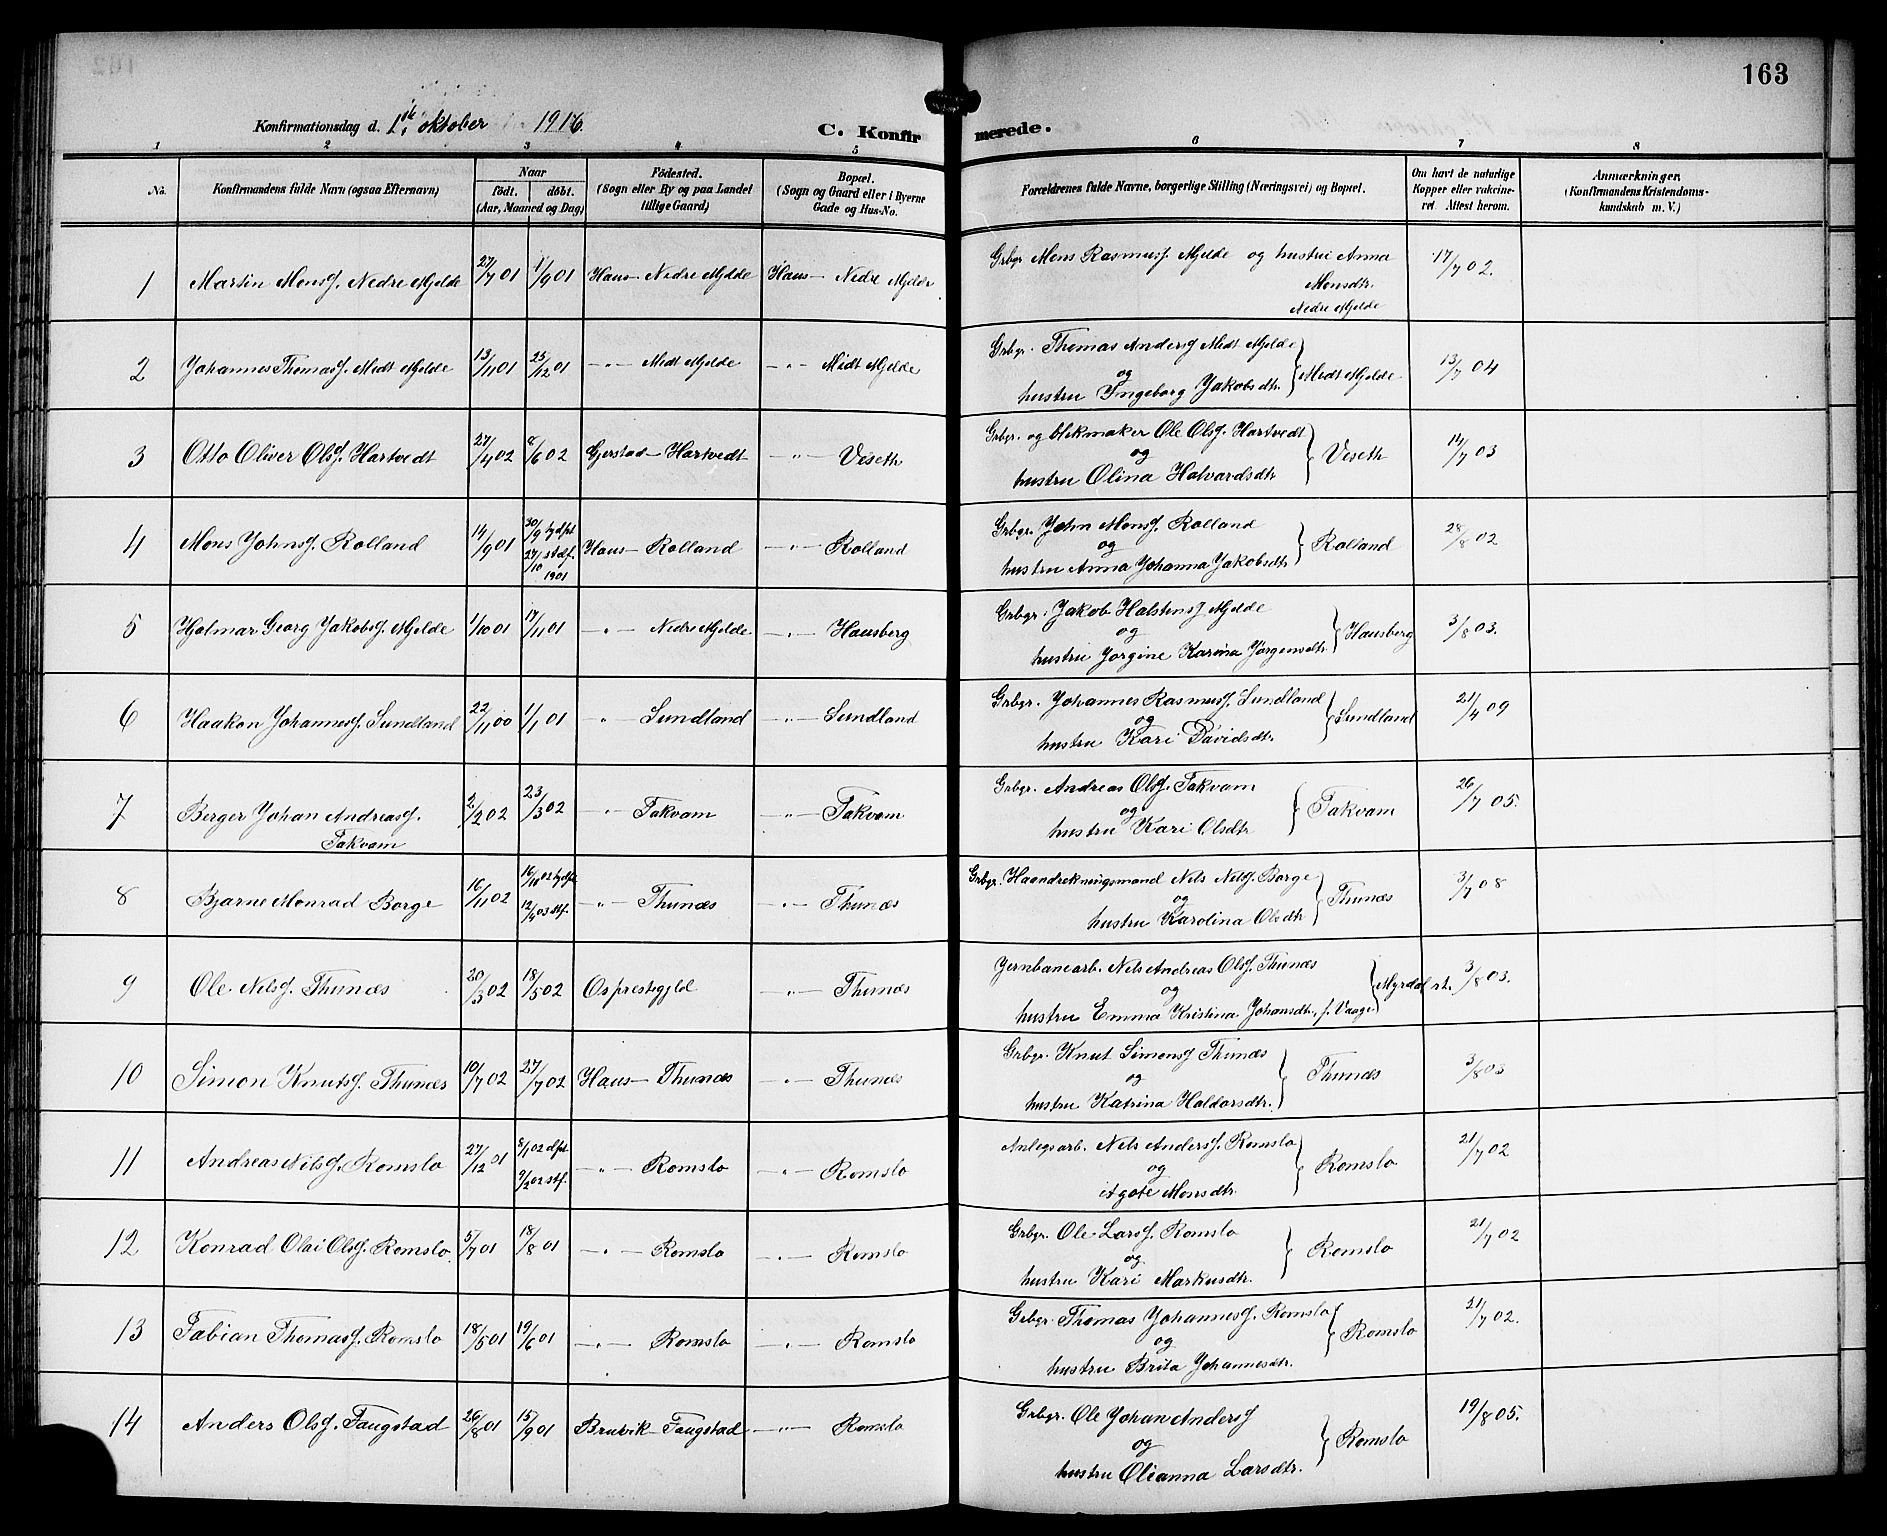 163
Konfirmationsdag d. 1ste oktober 1916.
C. Konfirmerede.
1 2 3 4 5 6 7 8
No.
Konfirmandens fulde Navn (ogsaa Efternavn)
Naar
født. døbt.
(Aar, Maaned og Dag)
Fødested.
(Sogn eller By og paa Landet
tillige Gaard)
Bopæl.
(Sogn og Gaard eller i Byerne
Gade og Hus-No.
Forældrenes fulde Navne, borgerlige Stilling (Næringsvei) og Bopæl.
Om havt de naturlige
Kopper eller vakcine-
ret. Attest herom.
Anmærkninger
(Konfirmandens Kristendoms-
kundskab m. V.)
1 Martin Monsf. Nedre Mjelde 27/7 01 1/9 01 Haus – Nedre Mjelde Haus – Nedre Mjelde Grbgr. Mons Rasmusf. Mjelde og hustru Anna 17/7 02.
Monsdtr.
Nedre Mjelde
2 Johannes Thomasf. Midt Mjelde 13/11 01 25/12 01 –"– Midt Mjelde –"– Midt Mjelde Grbgr. Thomas Andersf Midt Mjelde 13/7 04
og
hustru Ingeborg Jakobsdtr. } Midt Mjelde
3 Otto Oliver Olsf. Hartvedt 27/4 02 8/6 02 Gjerstad – Hartvedt –"– Viseth Grbgr. og blikmaker Ole Olsf. Hartvedt 14/7 03
og
hustru Olina Halvardsdtr } Viseth
4 Mons Johnsf. Rolland 14/9 01 30/9 hjdpt
27/10 stdf.
1901 Haus – Rolland –"– Rolland Grbgr. John Monsf. Rolland 28/8 02
og
hustru Anna Johanna Jakobsdtr } Rolland
5 Hjalmar Georg Jakobsf. Mjelde 1/10 01 17/11 01 –"– Nedre Mjelde –"– Hausberg Grbgr. Jakob Halstensf Mjelde 3/8 03.
og
hustru Jorgine Karina Jørgensdtr. } Hausberg
6 Haakon Johannesf. Sundland 22/11 00 1/1 01 " Sundland –"– Sundland Grbgr. Johannes Rasmusf. Sundland 21/4 09
og
hustru Kari Davidsdtr. } Sundland
7 Berger Johan Andreasf.
Takvam 2/2 02 23/3 02 –"– Takvam –"– Takvam Grbgr. Andreas Olsf. Takvam 26/7 05.
og
hustru Kari Olsdtr } Takvam
8 Bjarne Monrad Borge 16/11 02 hjdpt
12/4 03 stf. –"– Thunæs –"– Thunæs Grbgr. Haandrekningsmand Nils Nilsf. Borge 3/7 08
og
hustru Karolina Olsdtr } Thunæs
9 Ole Nilsf. Thunæs 20/3 02 18/5 02 Os prestegjeld –"– Thunæs Jernbanearb. Nils Andreas Olsf. Thunæs 3/8 03.
og
hustru Emma Kristina Johansdtr, f. Vaage } Myrdal st.
10 Simon Knutsf. Thunæs 10/7 02 27/7 02 Haus – Thunæs –"– Thunæs Grbgr. Knut Simonsf Thunæs 3/8 03
og
hustru Katrina Haldorsdtr. } Thunæs
11 Andreas Nilsf. Romslo 27/12 01 8/1 02 dfpt
9/2 02 stf. –"– Romslo –"– Romslo Anlegsarb. Nils Andersf. Romslo 21/7 02
og
Agote Monsdtr. } Romslo
12 Konrad Olai Olsf. Romslo 5/7 01 18/8 01 –"– Romslo –"– Romslo Grbgr. Ole Larsf. Romslo 21/7 02
og
hustru Kari Markusdtr. } Romslo
13 Fabian Thomasf. Romslo 18/5 01 19/6 01 –"– Romslo –"– Romslo Grbgr. Thomas Johannesf. Romslo 21/7 02.
og
hustru Brita Johannesdtr. } Romslo
14 Anders Olsf. Faugstad 26/8 01 15/9 01 Bruvik – Faugstad –"– Romslo Grbgr. Ole Johan Andersf 19/8 05.
og
hustru Olianna Larsdtr. } Romslo